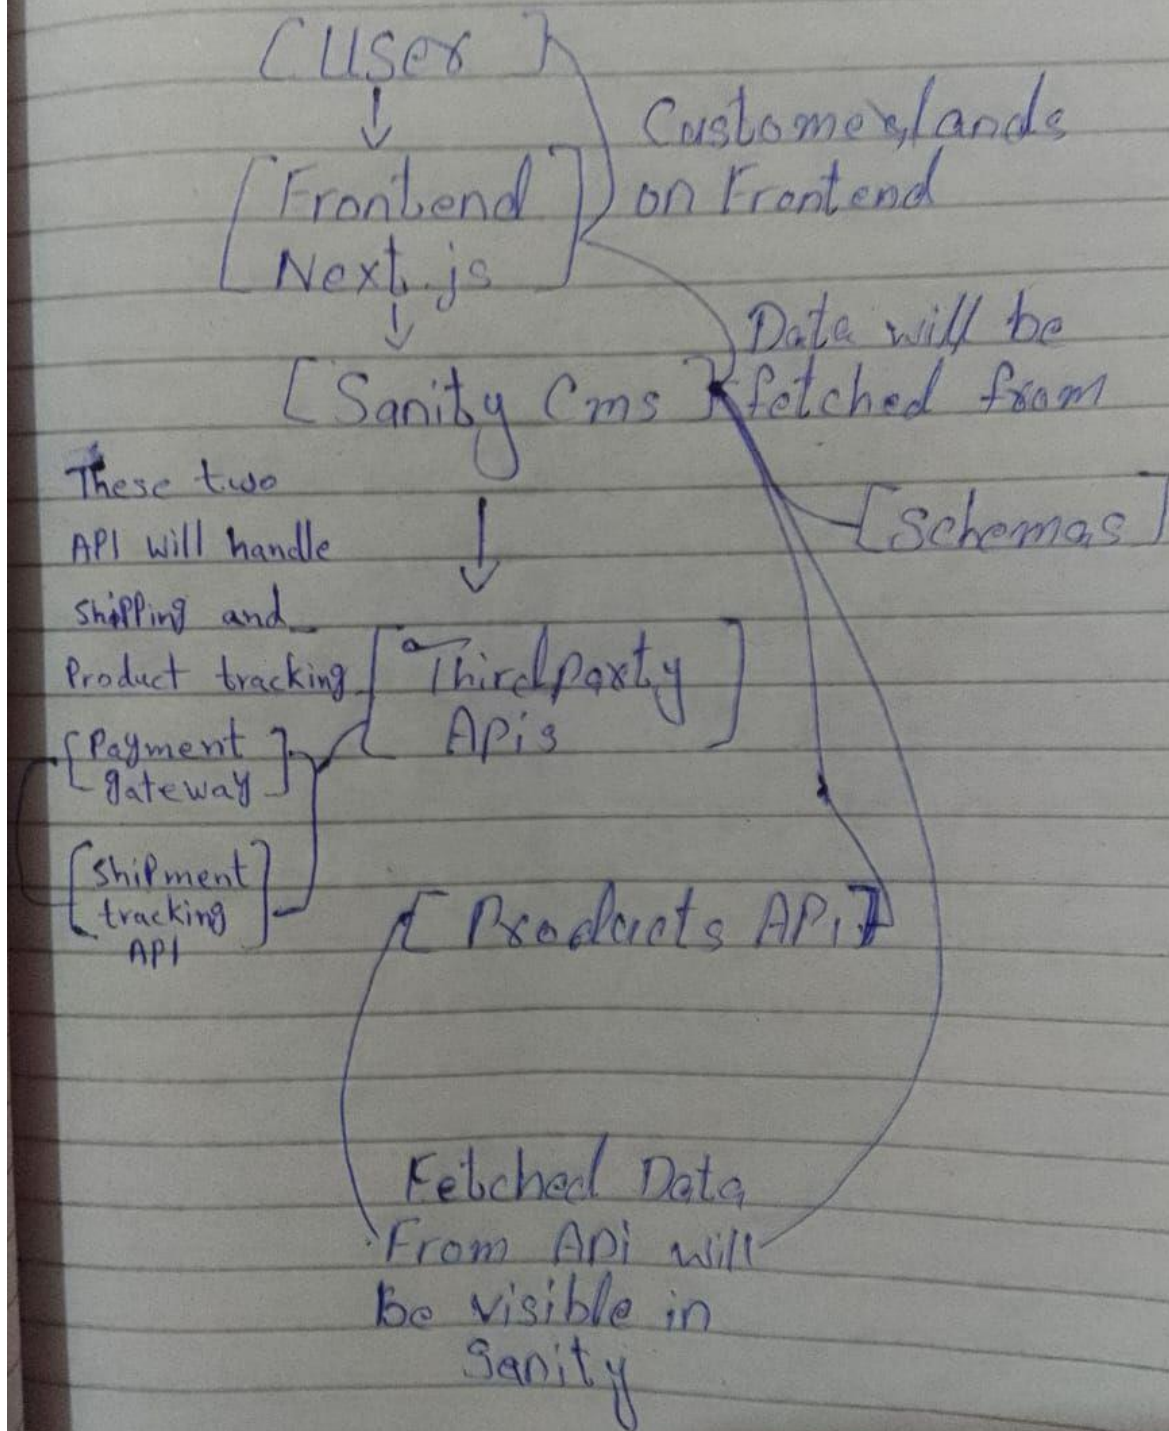 [User]
Customer lands
on Frontend
[Frontend
Next.js]
Data will be
fetched from
[Sanity Cms]
[Schemas]
These two
API will handle
Shipping and
Product tracking
[Thirdparty
Apis]
[Payment
gateway]
[Shipment
tracking
API]
[Products API]
Fetched Data
From Api will
Be visible in
Sanity